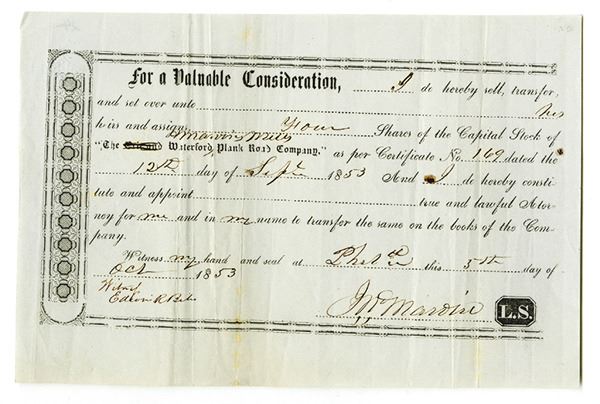 For a Valuable Consideration, I do hereby sell, transfer,
and set over unto his
heirs and assigns Four Shares of the Capital Stock of
"The Waterford Plank Road Company," as per Certificate No. 169 dated the
12th day of Sept 1853 And I do hereby consti
tute and appoint true and lawful Attor-
ney for me and in my name to transfer the same on the books of the Com-
pany.
Witness my hand and seal at this 5th day of
Oct 1853
L.S.